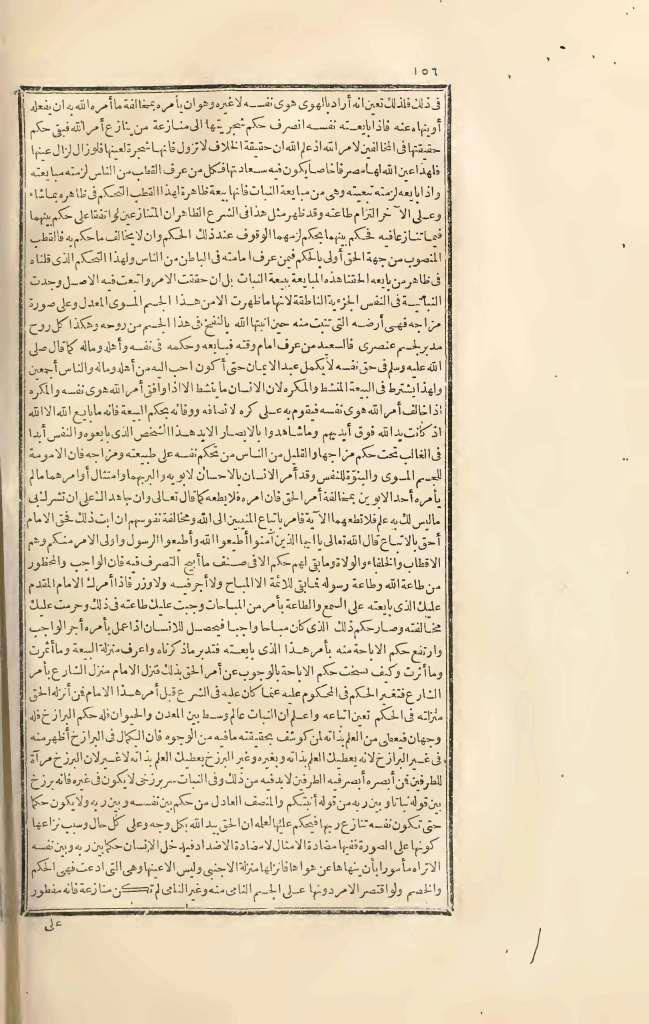 ١٥٦
فى ذلك فلذلك تعين انه أراد بالهوى هوى نفسه لا غيره وهو ان يأمره بمخالفة ما أمره الله به ان يفعله
أو ينهاه عنه فاذا بايعته نفسه انصرف حكم شجريتها الى منازعة من ينازع أمر الله فبقى حكم
حقيقتها فى المخالفين لامر الله اذ علم الله ان حقيقة الخلاف لا تزول فانها شجرة لعينها فلو زال لزال عينها
فلهذا عين الله لها مصرفا خاصا يكون فيه سعادتها فكل من عرف القطب من الناس لزمته مبايعته
واذا بايعه لزمته بيعته وهى من مبايعة النبات فانها بيعة ظاهرة لهذا القطب التحكم فى ظاهره بما شاء
وعلى الآخر التزام طاعته وقد ظهر مثل هذا فى الشرع الظاهر ان المتنازعين لو اتفقا على حكم بينهما
فيما تنازعا فيه فحكم بينهما بحكم لزمهما الوقوف عند ذلك الحكم وان لا يخالف ما حكم به فالقطب
المنصوب من جهة الحق أولى بالحكم فيمن عرف امامته فى الباطن من الناس ولهذا التحكم الذى قلناه
فى ظاهر من بايعه الحقنا هذه المبايعة ببيعة النبات بل ان حققت الامر واتبعت فيه الاصل وجدت
النباتية فى النفس الجزئية الناطقة لانها ما ظهرت الا من هذا الجسم المسوى المعدل وعلى صورة
مزاجه فهى أرضه التى نبتت منه حين انبتها الله بالنفخ فى هذا الجسم من روحه وهكذا كل روح
مدبر لجسم عنصرى فالسعيد من عرف امام وقته فبايعه وحكمه فى نفسه وأهله وماله كما قال صلى
الله عليه وسلم فى حق نفسه لا يكمل عبد الايمان حتى أكون احب اليه من أهله وماله والناس أجمعين
ولهذا يشترط فى البيعة المنشط والمكره لان الانسان ما ينشط الا اذا وافق أمر الله هوى نفسه والمكره
اذا خالف أمر الله هوى نفسه فيقوم به على كره لانصافه ووفائه بحكم البيعة فانه ما بايع الله الا الله
اذ كانت يد الله فوق أيديهم وما شاهدوا بالابصار الا يد هذا الشخص الذى بايعوه والنفس أبدا
فى الغالب تحت حكم مزاجها والقليل من الناس من تحكم نفسه على طبيعته ومزاجه فان الامومة
للجسم المسوى والبنوة للنفس وقد أمر الانسان بالاحسان لابويه والبر بهما وامتثال أوامرهما ما لم
يأمره أحد الابوين بمخالفة أمر الحق فان امره فلا يطعه كما قال تعالى وان جاهداك على ان تشرك بى
ما ليس لك به علم فلا تطعهما الآية فامر باتباع المنيبين الى الله ومخالفة نفوسهم ان ابت ذلك فحق الامام
أحق بالاتباع قال الله تعالى يا أيها الذين آمنوا أطيعوا الله وأطيعوا الرسول واولى الامر منكم وهم
الاقطاب والخلفاء والولاة وما بقى لهم حكم الا فى صنف ما أبيح التصرف فيه فان الواجب والمحظور
من طاعة الله وطاعة رسوله فما بقى للائمة الا المباح ولا أجر فيه ولا وزر فاذا أمرك الامام المقدم
عليك الذى بايعته على السمع والطاعة بأمر من المباحات وجبت عليك طاعته فى ذلك وحرمت عليك
مخالفته وصار حكم ذلك الذى كان مباحا واجبا فيحصل للانسان اذا عمل بأمره أجر الواجب
وارتفع حكم الاباحة منه بأمر هذا الذى بايعته فتدبر ما ذكرناه واعرف منزلة البيعة وما أثمرت
وما أثرت وكيف نسخت حكم الاباحة بالوجوب عن أمر الحق بذلك فنزل الامام منزل الشارع بأمر
الشارع فتغير الحكم فى المحكوم عليه عما كان عليه فى الشرع قبل أمر هذا الامام فمن أنزله الحق
منزلته فى الحكم تعين اتباعه واعلم ان النبات عالم وسط بين المعدن والحيوان فله حكم البرازخ فله
وجهان فيعطى من العلم بذاته لمن كوشف بحقيقته ما فيه من الوجوه فان الكمال فى البرازخ أظهر منه
فى غير البرازخ لانه يعطيك العلم بذاته وبغيره وغير البرزخ يعطيك العلم بذاته لا غير لان البرزخ مرآة
للطرفين فمن أبصره أبصر فيه الطرفين لا بد فيه من ذلك وفى النبات سر برزخى لا يكون فى غيره فانه برزخ
بين قوله نباتا وبين ربه من قوله أنبتكم والمنصف العادل من حكم بين نفسه وبين ربه ولا يكون حكما
حتى تكون نفسه تنازع ربها فيحكم عليها لعلمه ان الحق بيد الله بكل وجه وعلى كل حال وسبب نزاعها
كونها على الصورة ففيها مضادة الامثال لا مضادة الاضداد فيدخل الانسان حكما بين ربه وبين نفسه
الا تراه مأمورا بأن ينهاها عن هواها فانزلها منزلة الاجنبى وليس الا عينها وهى التى ادعت فهى الحكم
والخصم ولو اقتصر الامر دونها على الجسم النامى منه وغير النامى لم تكن منازعة فانه مفطور
على